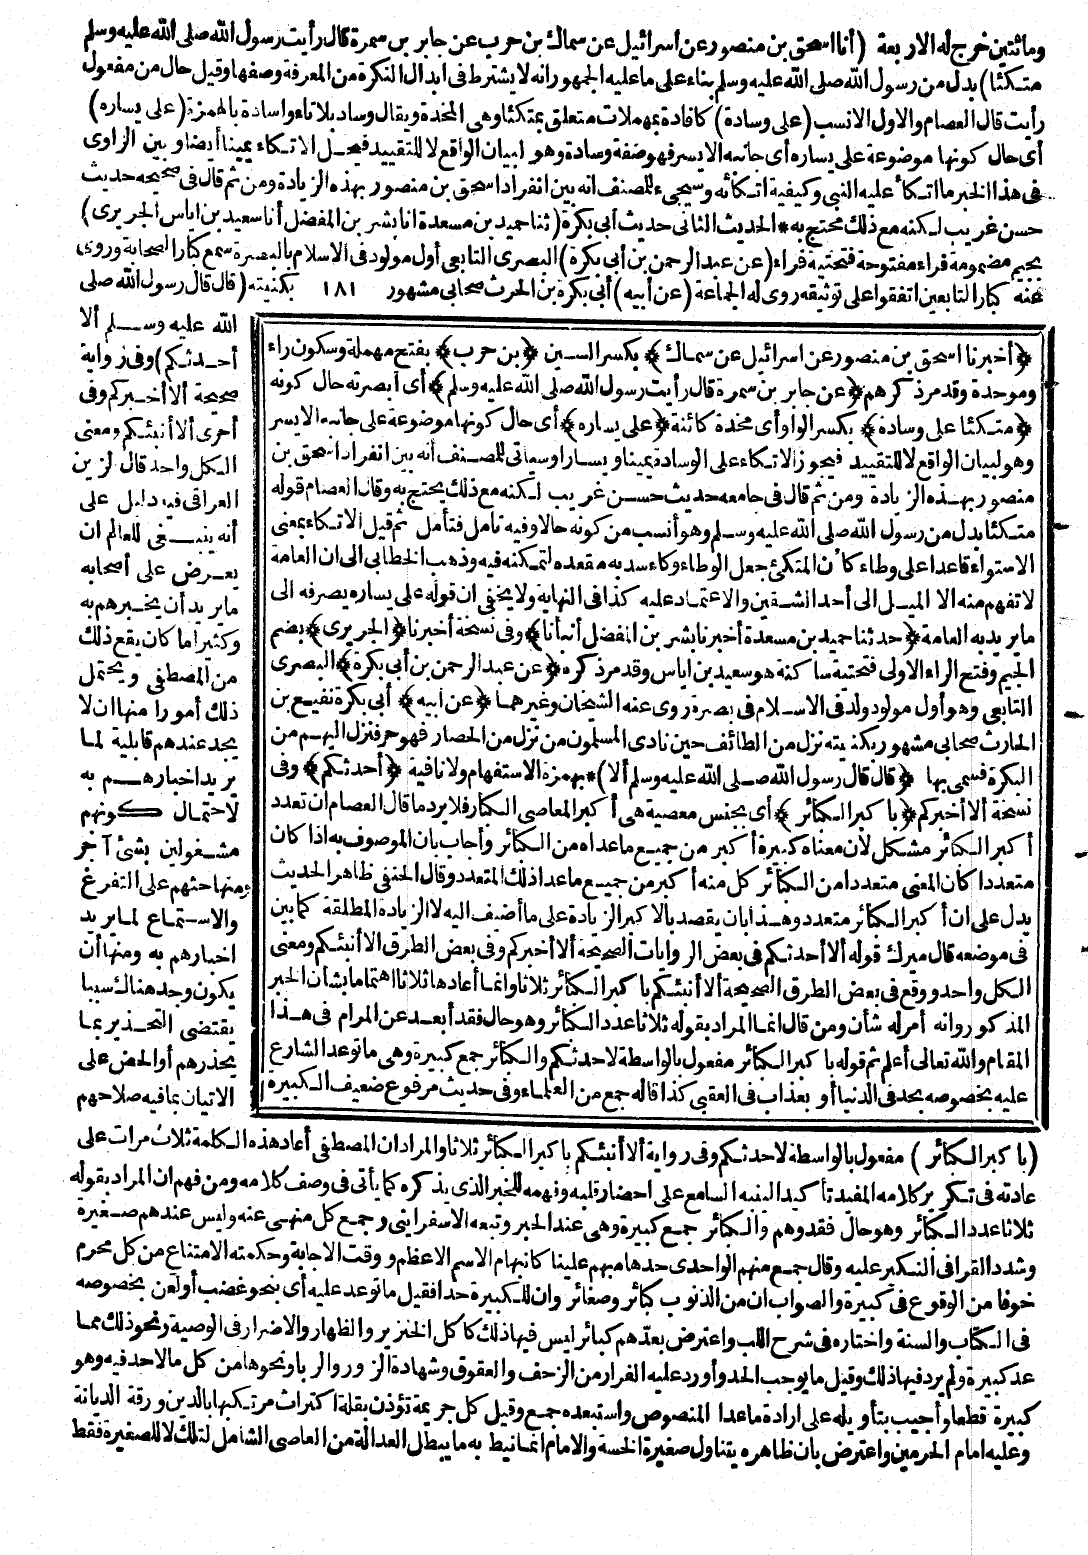 ومائتين خرج له الاربعة (أنا اسحق بن منصور عن اسرائيل عن سماك بن حرب عن جابر بن سمرة قال رأيت رسول الله صلى الله عليه وسلم
متكئا) بدل من رسول الله صلى الله عليه وسلم بناء على ما عليه الجمهور انه لا يشترط فى ابدال النكرة من المعرفة وصفها وقيل حال من مفعول
رأيت قال العصام والاول الانسب (على وسادة) كافادة بمهملات متعلق بمتكئا وهى المخدة ويقال وساد بلا تاء واسادة بالهمزة (على يساره)
أى حال كونها موضوعة على يساره أى جانبه الايسر فهو صفة وسادة وهو لبيان الواقع لا للتقييد فيحل الاتكاء يمينا أيضا وبين الراوى
فى هذا الخبر ما اتكأ عليه النبى وكيفية اتكائه وسيجىء للمصنف انه بين انفراد اسحق بن منصور بهذه الزيادة ومن ثم قال فى صحيحه حديث
حسن غريب لكنه مع ذلك محتج به * الحديث الثانى حديث أبى بكرة (ثنا حميد بن مسعدة انا بشر بن المفضل أنا سعيد بن اياس الجريرى)
بجيم مضمومة فراء مفتوحة فتحتية فراء (عن عبد الرحمن بن أبى بكرة) البصرى التابعى أول مولود فى الاسلام بالبصرة سمع كبار الصحابة وروى
عنه كبار التابعين اتفقوا على توثيقه روى له الجماعة (عن أبيه) أبى بكرة بن الحرث صحابى مشهور ١٨١ بكنيته (قال قال رسول الله صلى
الله عليه وسلم ألا
أحدثكم) وفى رواية
صحيحة ألا أخبركم وفى
أخرى ألا أنبئكم ومعنى
الكل واحد قال الزين
العراقى فيه دليل على
أنه ينبغى للعالم ان
يعرض على أصحابه
ما يريد أن يخبرهم به
وكثيرا ما كان يقع ذلك
من المصطفى ويحتمل
ذلك أمورا منها ان لا
يجد عندهم قابلية لما
يريد اخبارهم به
لاحتمال كونهم
مشغولين بشئ آخر
ومنها حثهم على التفرغ
والاستماع لما يريد
اخبارهم به ومنها أن
يكون وجد هناك سببا
يقتضى التحذير بما
يحذرهم أو الحض على
الاتيان بما فيه صلاحهم
﴿أخبرنا اسحق بن منصور عن اسرائيل عن سماك﴾ بكسر السين ﴿بن حرب﴾ بفتح مهملة وسكون راء
وموحدة وقد مر ذكرهم ﴿عن جابر بن سمرة قال رأيت رسول الله صلى الله عليه وسلم﴾ أى أبصرته حال كونه
﴿متكئا على وسادة﴾ بكسر الواو أى مخدة كائنة ﴿على يساره﴾ أى حال كونها موضوعة على جانبه الايسر
وهو لبيان الواقع لا للتقييد فيجوز الاتكاء على الوسادة يمينا ويسارا وسيأتى للمصنف أنه بين انفراد اسحق بن
منصور بهذه الزيادة ومن ثم قال فى جامعه حديث حسن غريب لكنه مع ذلك يحتج به وقال العصام قوله
متكئا بدل من رسول الله صلى الله عليه وسلم وهو أنسب من كونه حالا وفيه تأمل فتأمل ثم قيل الاتكاء بمعنى
الاستواء قاعدا على وطاء كأن المتكئ جعل الوطاء وكاء سد به مقعده لتمكنه فيه وذهب الخطابى الى ان العامة
لا تفهم منه الا الميل الى أحد الشقين والاعتماد عليه كذا فى النهاية ولا يخفى ان قوله على يساره يصرفه الى
ما يريد به العامة ﴿حدثنا حميد بن مسعدة أخبرنا بشر بن المفضل أنبأنا﴾ وفى نسخة أخبرنا ﴿الجريرى﴾ بضم
الجيم وفتح الراء الاولى فتحتية ساكنة هو سعيد بن اياس وقد مر ذكره ﴿عن عبد الرحمن بن أبى بكرة﴾ البصرى
التابعى وهو أول مولود ولد فى الاسلام فى بصرة روى عنه الشيخان وغيرهما ﴿عن أبيه﴾ أبى بكرة نفيع بن
الحارث صحابى مشهور بكنيته نزل من الطائف حين نادى المسلمون من نزل من الحصار فهو حر فنزل اليهم من
البكرة فسمى بها ﴿قال قال رسول الله صلى الله عليه وسلم ألا﴾ * بهمزة الاستفهام ولا نافية ﴿أحدثكم﴾ وفى
نسخة ألا أخبركم ﴿باكبر الكبائر﴾ أى بجنس معصية هى أكبر المعاصى الكبار فلا يرد ما قال العصام ان تعدد
أكبر الكبائر مشكل لأن معناه كبيرة أكبر من جميع ما عداه من الكبائر وأجاب بان الموصوف به اذا كان
متعددا كان المعنى متعددا من الكبائر كل منه أكبر من جميع ما عدا ذلك المتعدد وقال الحنفى ظاهر الحديث
يدل على ان أكبر الكبائر متعدد وهذا بان يقصد بالاكبر الزيادة على ما أضيف اليه لا الزيادة المطلقة كما بين
فى موضعه قال ميرك قوله ألا أحدثكم فى بعض الروايات الصحيحة ألا أخبركم وفى بعض الطرق الا أنبئكم ومعنى
الكل واحد ووقع فى بعض الطرق الصحيحة ألا أنبئكم باكبر الكبائر ثلاثا وانما أعادها ثلاثا اهتماما بشأن الخبر
المذكور وانه أمر له شأن ومن قال انما المراد بقوله ثلاثا عدد الكبائر وهو حال فقد أبعد عن المرام فى هذا
المقام والله تعالى أعلم ثم قوله باكبر الكبائر مفعول بالواسطة لاحدثكم والكبائر جمع كبيرة وهى ما توعد الشارع
عليه بخصوصه بحد فى الدنيا أو بعذاب فى العقبى كذا قاله جمع من العلماء وفى حديث مرفوع ضعيف الكبيرة
(باكبر الكبائر) مفعول بالواسطة لاحدثكم وفى رواية ألا أنبئكم باكبر الكبائر ثلاثا والمراد ان المصطفى أعاد هذه الكلمة ثلاث مرات على
عادته فى تكرير كلامه المفيد تأكيدا لينبه السامع على احضار قلبه وفهمه للخبر الذى يذكره كما يأتى فى وصف كلامه ومن فهم ان المراد بقوله
ثلاثا عدد الكبائر وهو حال فقد وهم والكبائر جمع كبيرة وهى عند الحبر وتبعه الاسفراينى وجمع كل منهى عنه وليس عندهم صغيرة
وشدد القرافى النكير عليه وقال جمع منهم الواحدى حدها مبهم علينا كابهام الاسم الاعظم ووقت الاجابة وحكمته الامتناع من كل محرم
خوفا من الوقوع فى كبيرة والصواب ان من الذنوب كبائر وصغائر وان للكبيرة حدا فقيل ما توعد عليه أى بنحو غضب أو لعن بخصوصه
فى الكتاب والسنة واختاره فى شرح اللب واعترض بعدهم كبائر ليس فيها ذلك كاكل الخنزير والظهار والاضرار فى الوصية ونحو ذلك مما
عد كبيرة ولم يرد فيها ذلك وقيل ما يوجب الحد وأورد عليه الفرار من الزحف والعقوق وشهادة الزور والربا ونحوها من كل ما لا حد فيه وهو
كبيرة قطعا وأجيب بتأويله على ارادة ما عدا المنصوص واستبعده جمع وقيل كل جريمة تؤذن بقلة اكتراث مرتكبها بالدين ورقة الديانة
وعليه امام الحرمين واعترض بان ظاهره يتناول صغيرة الخسة والامام انما نيط به ما يبطل العدالة من المعاصى الشامل لتلك لا للصغيرة فقط